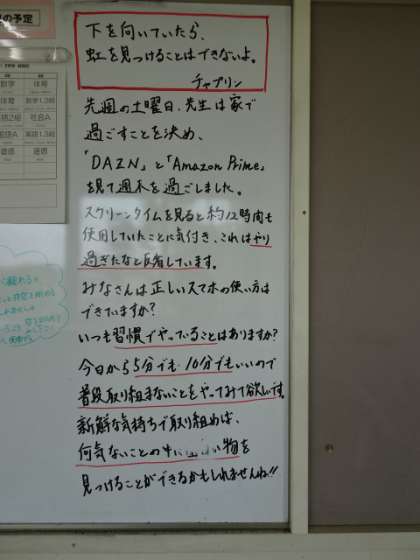 の予定
体育
数学1,3組
社会A
国語A
英語1,3組
道徳
道徳
下を向いていたら、
虹を見つけることはできないよ。
チャプリン
先週の土曜日、先生は家で
過ごすことを決め、
「DAZN」と「Amazon Prime」
を見て週末を過ごしました。
スクリーンタイムを見ると約12時間も
使用していたことに気付き、これはやり
過ぎたなと反省しています。
みなさんは正しいスマホの使い方は
できていますか?
いつも習慣でやっていることはありますか?
今日から5分でも10分でもいいので
普段取り組まないことをやってみて欲しいです。
新鮮な気持ちで取り組めば、
何気ないことの中に い物を
見つけることができるかもしれませんね!!